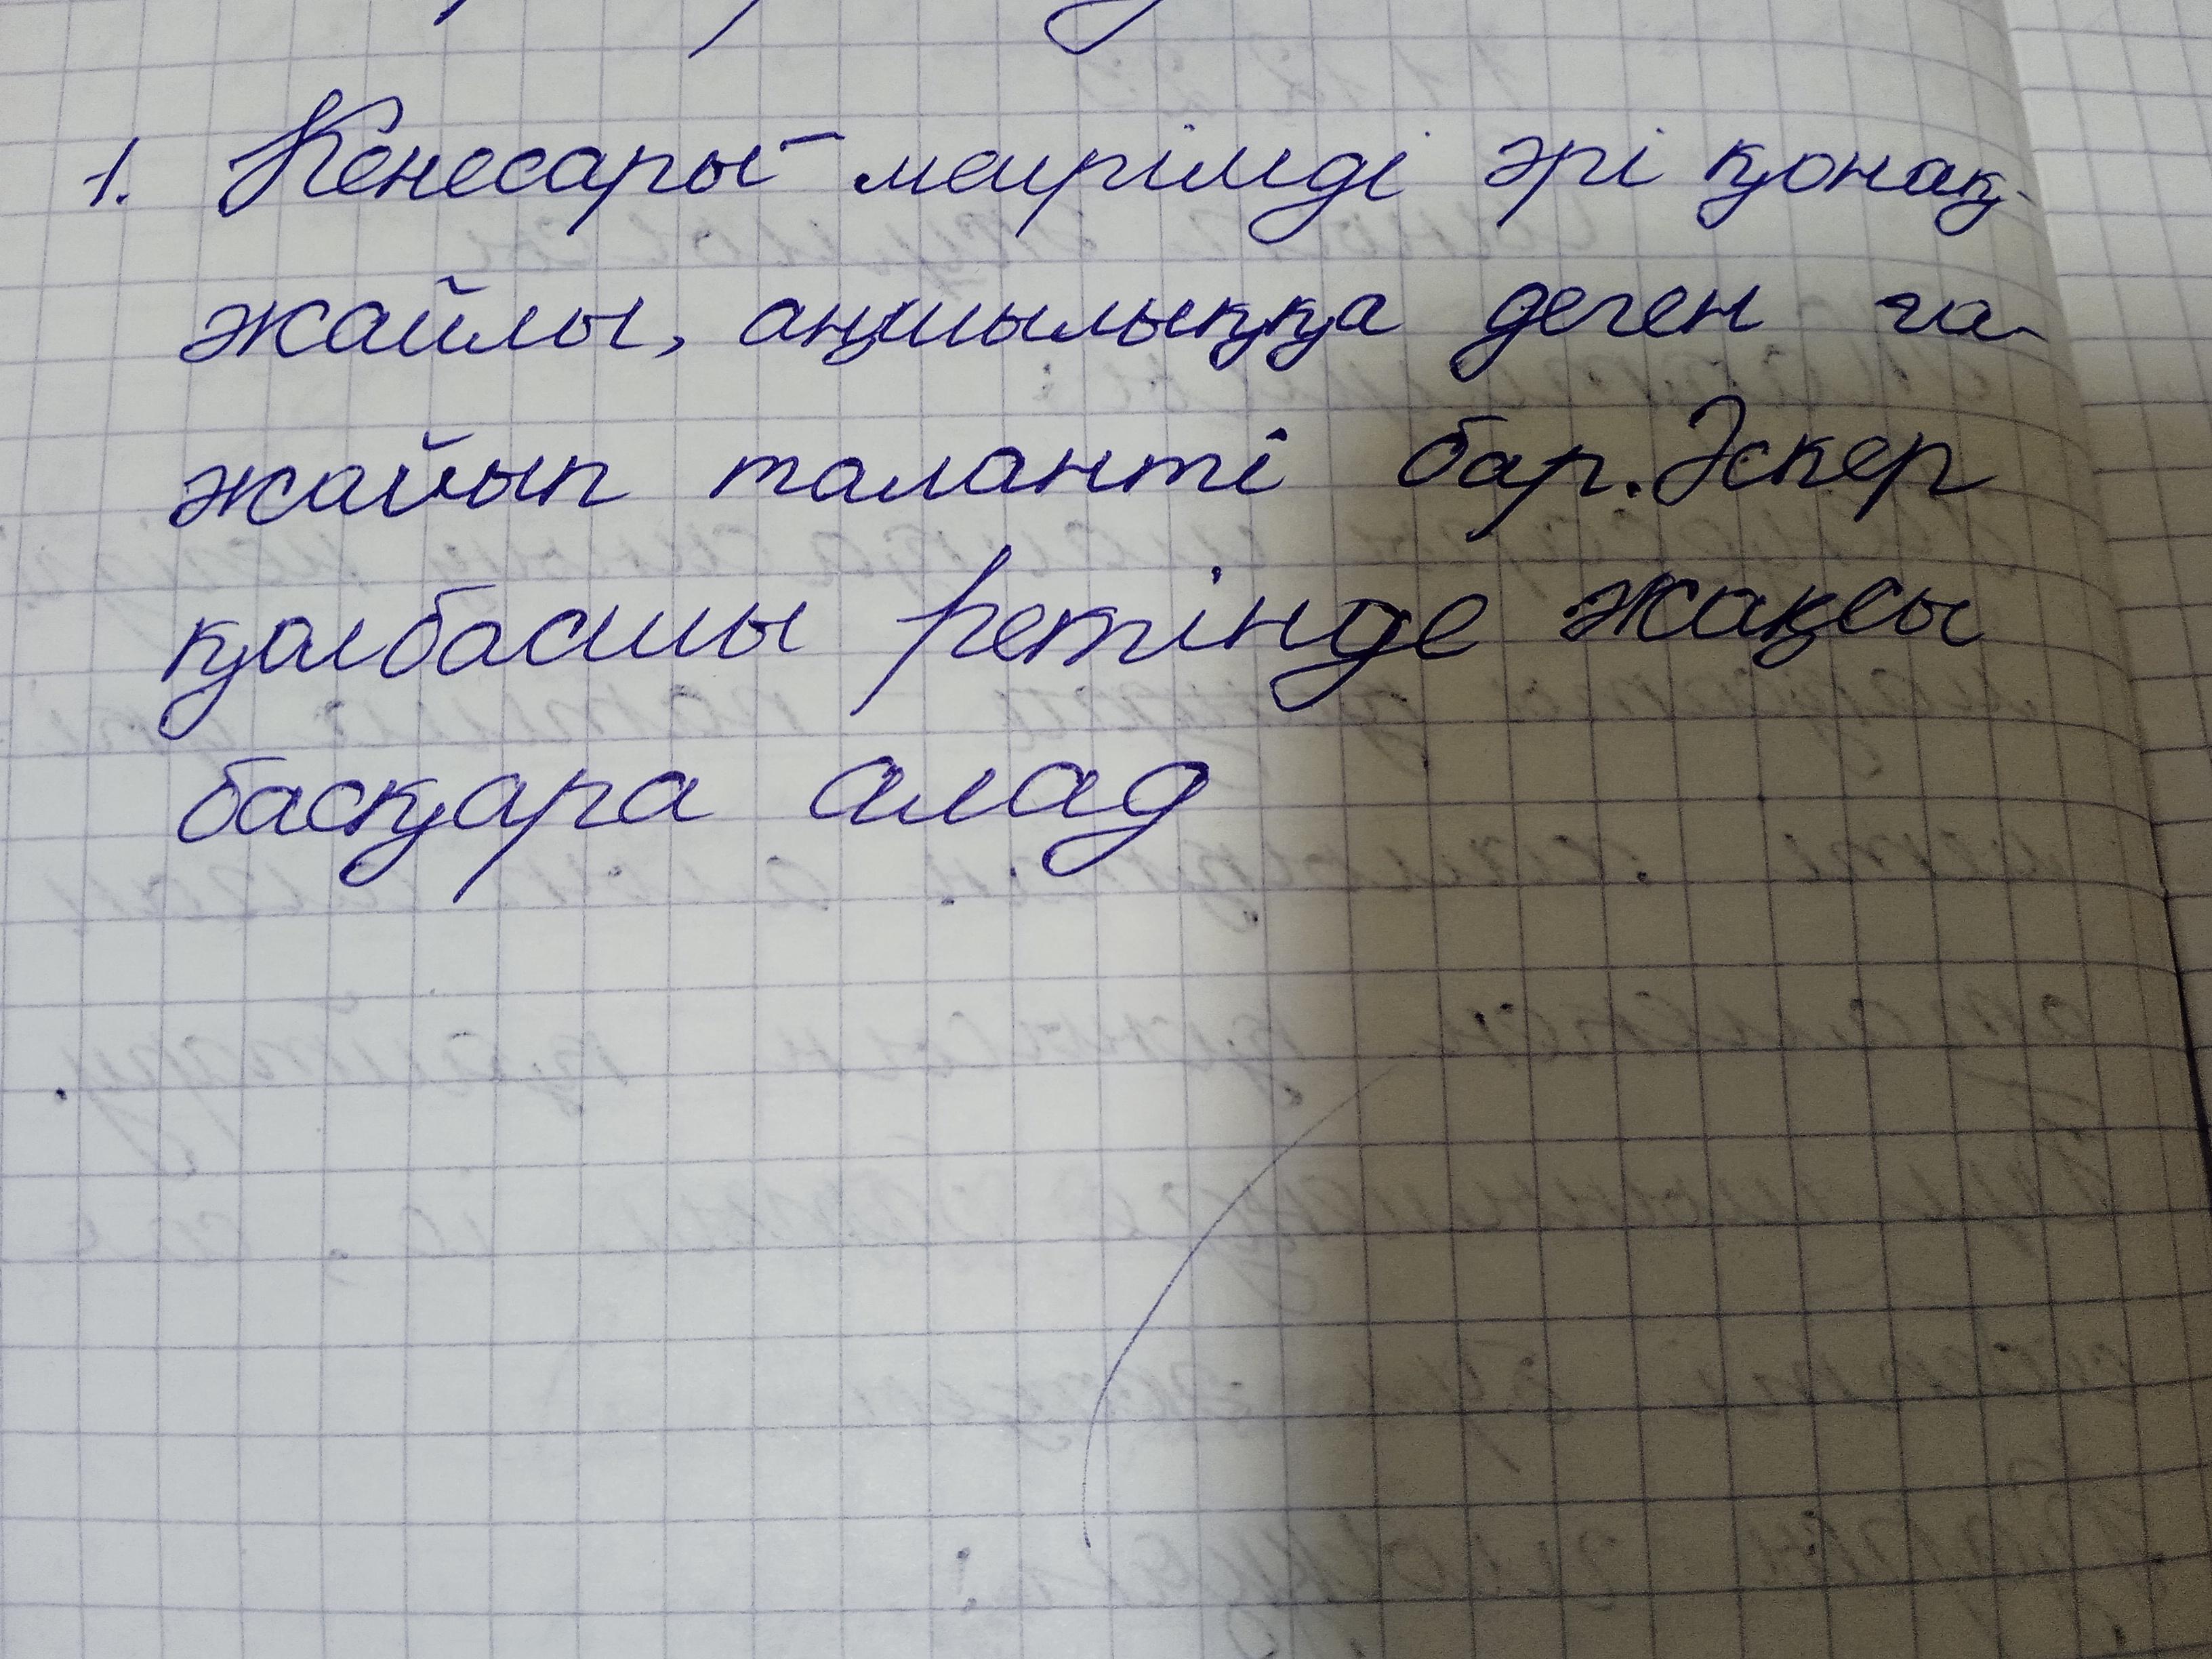 1. Кенесары - мейрімді әрі қонақ-
жайлы, аңшылыққа деген ға-
жайып таланті бар. Әскер
қолбасшы ретінде жақсы
басқара алад